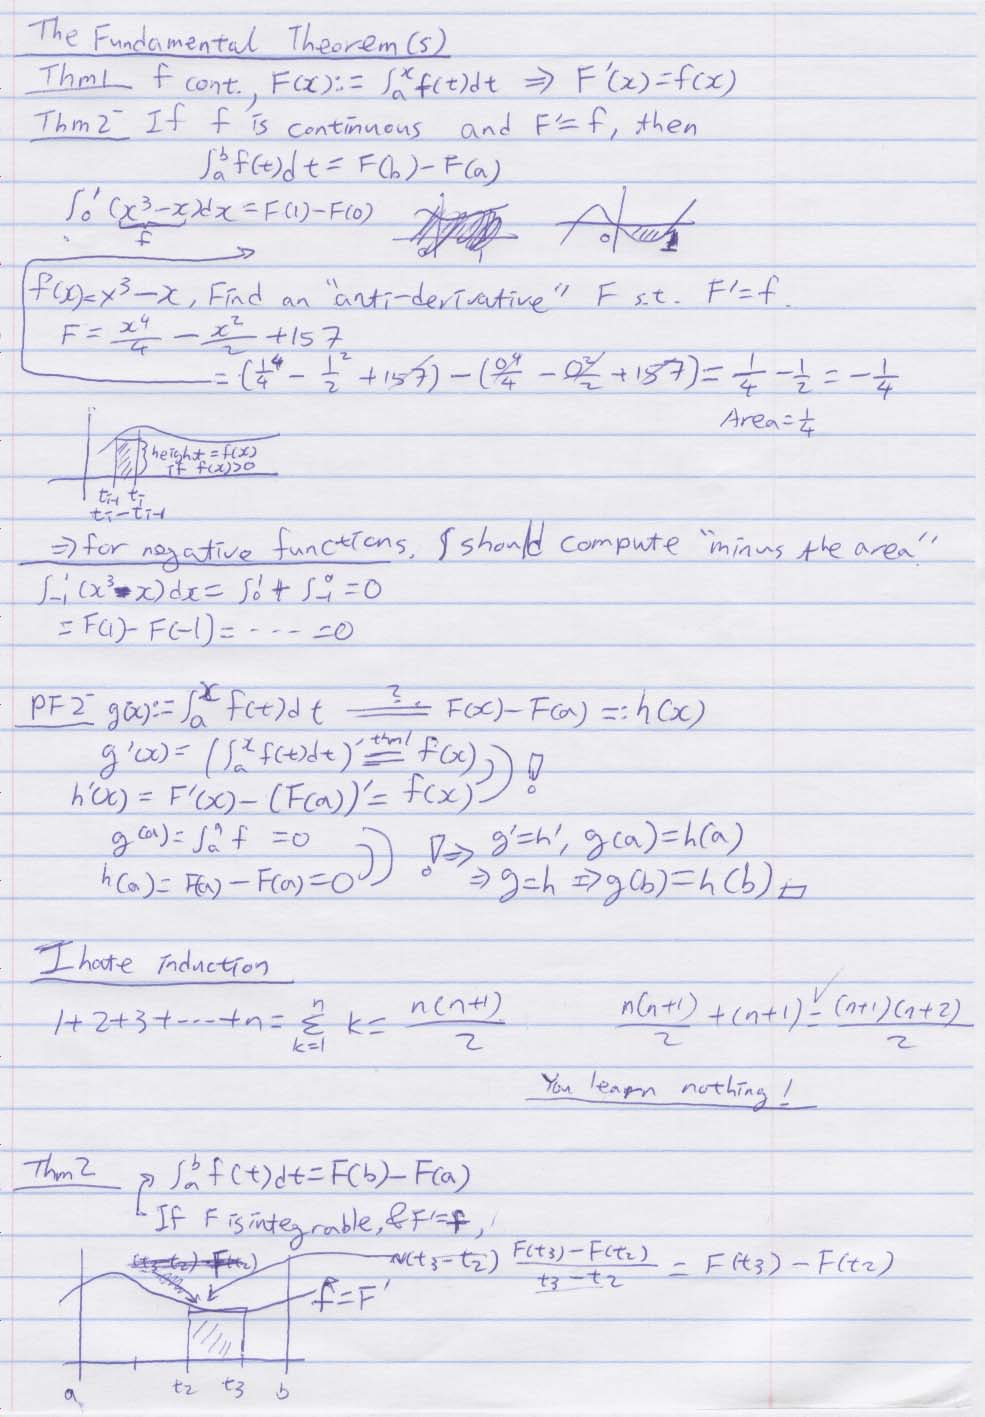 The Fundamental Theorem(s)
Thm1 f cont., F(x) := ∫ₐˣ f(t)dt ⇒ F'(x)=f(x)
Thm2 If f is continuous and F'=f, then
∫ₐᵇ f(t)dt = F(b)-F(a)
∫₀¹ (x³-x)dx = F(1)-F(0)
f
0 1
f(x)=x³-x, Find an "anti-derivative" F s.t. F'=f.
F = x⁴/4 - x²/2 + 157
= (1⁴/4 - 1²/2 + 157) - (0⁴/4 - 0²/2 + 157) = 1/4 - 1/2 = -1/4
Area = 1/4
height = f(x)
if f(x)>0
tᵢ₋₁ tᵢ
tᵢ-tᵢ₋₁
⇒ for negative functions, ∫ should compute "minus the area"
∫₋₁¹ (x³-x)dx = ∫₀¹ + ∫₋₁⁰ = 0
= F(1)-F(-1) = ---- = 0
PF2 g(x) := ∫ₐˣ f(t)dt =?= F(x)-F(a) =: h(x)
g'(x) = (∫ₐˣ f(t)dt)' =thm1= f(x) !
h'(x) = F'(x)-(F(a))' = f(x)
g(a) = ∫ₐᵃ f = 0 ! ⇒ g'=h', g(a)=h(a)
h(a) = F(a)-F(a)=0 ⇒ g=h ⇒ g(b)=h(b) □
I hate induction
1+2+3+----+n = Σₖ₌₁ⁿ k = n(n+1)/2 n(n+1)/2 + (n+1) =✓ (n+1)(n+2)/2
You learn nothing!
Thm2 ∫ₐᵇ f(t)dt = F(b)-F(a)
If F is integrable, & F'=f,
~(t₃-t₂) (F(t₃)-F(t₂))/(t₃-t₂) = F(t₃)-F(t₂)
f=F'
a t₂ t₃ b